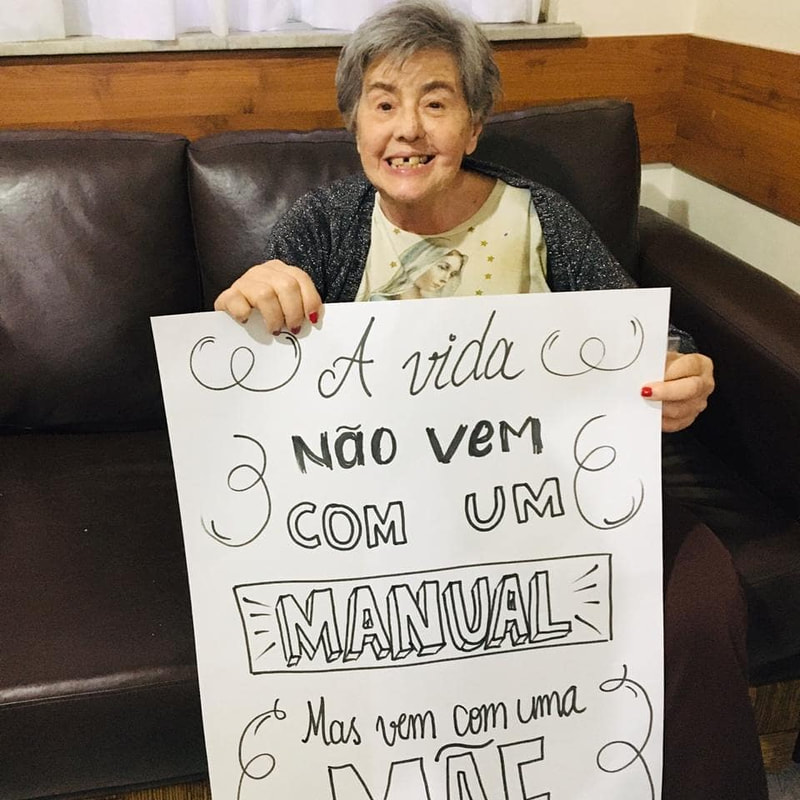 A vida
NÃO VEM
COM UM
MANUAL
Mas vem com uma
MÃE